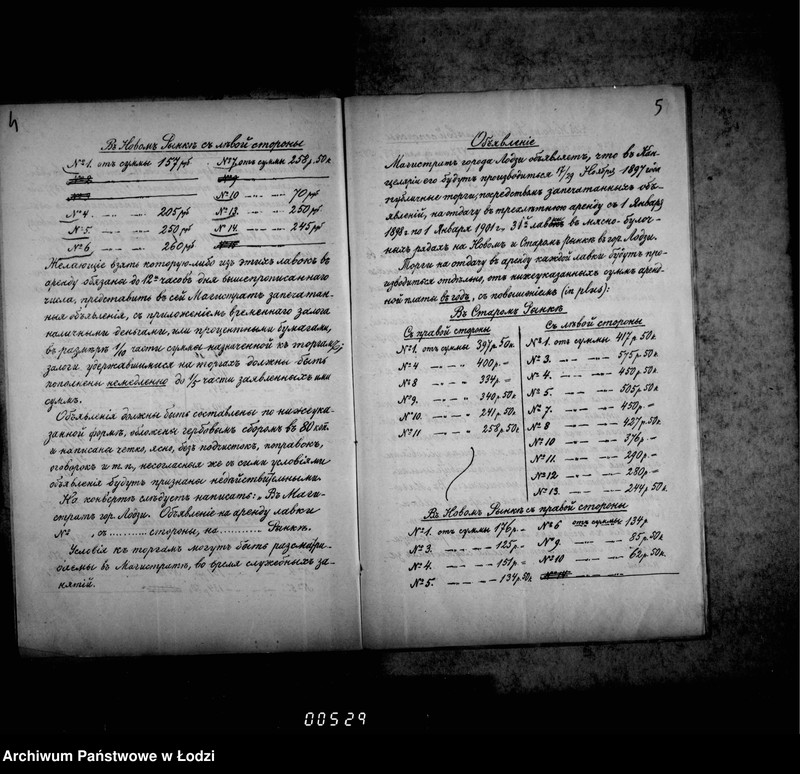 4
Въ Новомъ Рынкѣ съ лѣвой стороны
№ 1. отъ суммы 157 руб № 7. отъ суммы 258 р. 50 к
№ 10 — — 70 руб
№ 4. — — 205 руб № 13. — — 250 руб
№ 5. — — 250 руб № 14. — — 245 руб
№ 6 — — 260 руб
Желающіе взять которую-либо изъ этихъ лавокъ въ
аренду обязаны до 12ти часовъ дня вышепрописаннаго
числа, представить въ сей Магистратъ запечатан-
ныя объявленія, съ приложеніемъ временнаго залога
наличными деньгами, или процентными бумагами,
въ размѣрѣ 1/10 части суммы назначенной къ торгамъ;
залоги удержавшимися на торгахъ должны быть
пополнены немедленно до части заявленныхъ ими
суммъ.
Объявленія должны быть составлены по нижеука-
занной формѣ, обложены гербовымъ сборомъ въ 80 коп.
и написаны четко, ясно, безъ подчистокъ, поправокъ,
оговорокъ и т. п., несогласныя же съ сими условіями
объявленія будутъ признаны недѣйствительными.
На конвертѣ слѣдуетъ написать: „Въ Маги-
стратъ гор. Лодзи. Объявленіе на аренду лавки
№ , съ.......... стороны, на............ Рынкѣ.
Условія къ торгамъ могутъ быть разсматри-
ваемы въ Магистратѣ, во время служебныхъ за-
нятій.
5
Объявленіе
Магистратъ города Лодзи объявляетъ, что въ Кан-
целяріи его будутъ производиться 17/29 Ноября 1897 года
публичные торги, посредствомъ запечатанныхъ объ-
явленій, на отдачу въ трехлѣтнюю аренду съ 1 Января
1898 г. по 1 Января 1901 г. 31 лавокъ въ мясно-булоч-
ныхъ рядахъ на Новомъ и Старомъ рынкѣ въ гор. Лодзи.
Торги на отдачу въ аренду каждой лавки будутъ про-
изводиться отдѣльно, отъ нижеуказанныхъ суммъ аренд-
ной платы въ годъ, съ повышеніемъ (in plus):
Въ Старомъ Рынкѣ
Съ правой стороны
№ 1. отъ суммы 397 р. 50 к.
№ 4 — — 400 р. „
№ 8 — — 334 р. „
№ 9. — „ 340 р. 50 к.
№ 10. — „ 241 р. 50 к.
№ 11 — „ 258 р. 50 к
Съ лѣвой стороны
№ 1. отъ суммы 417 р. 50 к.
№ 3. — — 575 р. 50 к.
№ 4. — — 450 р. 50 к.
№ 5. — — 505 р. 50 к.
№ 7. — — 450 р. „
№ 8 — — 427 р. 50 к.
№ 10 — — 376 р. „
№ 11. — — 290 р. „
№ 12 — — 280 р. „
№ 13. — — 244 р. 50 к.
Въ Новомъ Рынкѣ съ правой стороны
№ 1. отъ суммы 176 р. „ № 6 отъ суммы 134 р
№ 3. — — 125 р. „ № 9. — — 85 р. 50 к
№ 4. — — 151 р. „ № 10 — — 62 р. 50 к.
№ 5. — — 134 р. 50 к
00529
Archiwum Państwowe w Łodzi